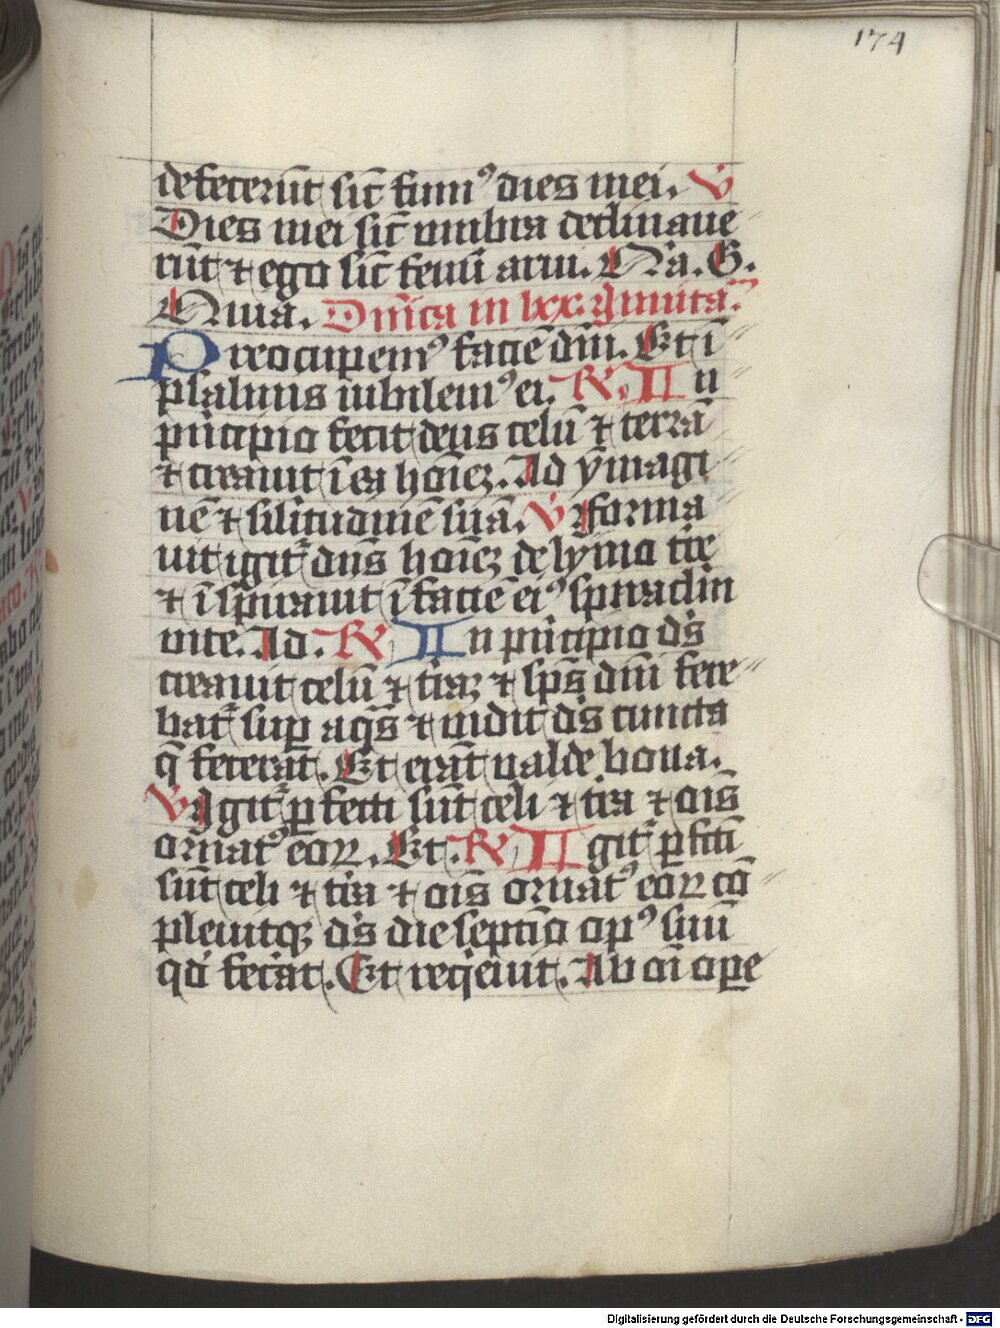 174
defecerūt sic̄ fumꝰ dies mei. ℣
Dies mei sic̄ umbra declinaue
rūt ⁊ ego sic̄ fenū arui. Na. G.
Niua. Dn̄ica in lxx. Inuita.
Preocupemꝰ faciē dn̄i. Et ī
psalmis iubilemꝰ ei. ℟. In
pͥncipio fecit deus celū ⁊ terrā
⁊ creauit ī ea hoīeꝫ. Ad ymagi
nē ⁊ sil̄itudinē suā. ℣ Forma
uit igit᷑ dn̄s hoīeꝫ de lymo tr̄e
⁊ īspirauit ī faciē eiꝰ spiraclm̄
uite. Ad. ℟ In pͥncipio ds̄
creauit celū ⁊ tr̄aꝫ ⁊ sps̄ dn̄i fere
bat᷑ suꝑ aqs̄ ⁊ uidit ds̄ cuncta
q̄ fecerāt. Et erāt ualde bona.
℣ Igit᷑ ꝑfecti sūt celi ⁊ tr̄a ⁊ oīs
ornatꝰ eoꝝ. Et. ℟ Igit᷑ ꝑfc̄ti
sūt celi ⁊ tr̄a ⁊ oīs ornatꝰ eoꝝ cō
pleuitqꝫ ds̄ die septīo opꝰ suū
qd̄ fec̄at. Et reqͥeuit. Ab oī oꝑe
Digitalisierung gefördert durch die Deutsche Forschungsgemeinschaft - DFG